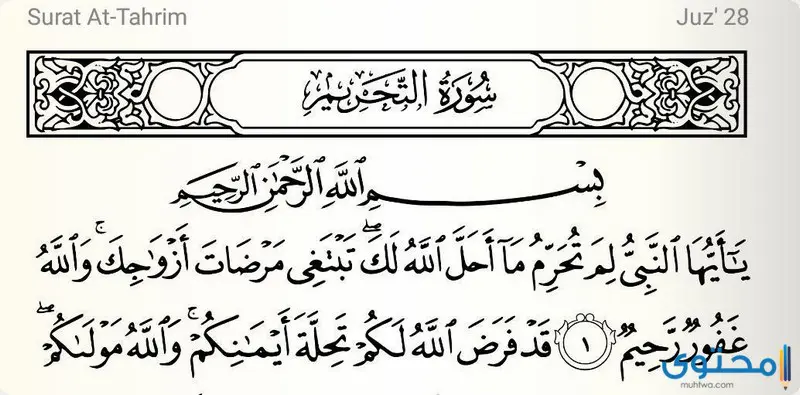 Surat At-Tahrim
Juz' 28
سُورَةُ التَّحْرِيمِ
بِسْمِ ٱللَّهِ ٱلرَّحْمَٰنِ ٱلرَّحِيمِ
يَٰٓأَيُّهَا ٱلنَّبِىُّ لِمَ تُحَرِّمُ مَآ أَحَلَّ ٱللَّهُ لَكَ ۖ تَبْتَغِى مَرْضَاتَ أَزْوَٰجِكَ ۚ وَٱللَّهُ
غَفُورٌ رَّحِيمٌ ١ قَدْ فَرَضَ ٱللَّهُ لَكُمْ تَحِلَّةَ أَيْمَٰنِكُمْ ۚ وَٱللَّهُ مَوْلَىٰكُمْ ۖ
محتوى
muhtwa.com